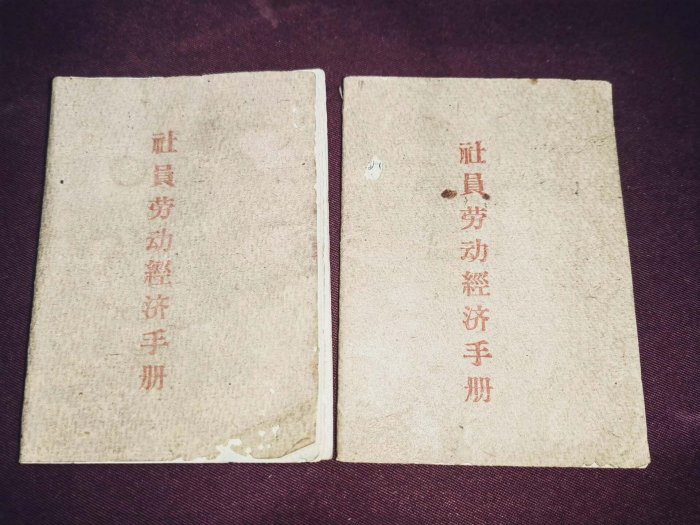 社員劳动經济手册
社員劳动經济手册